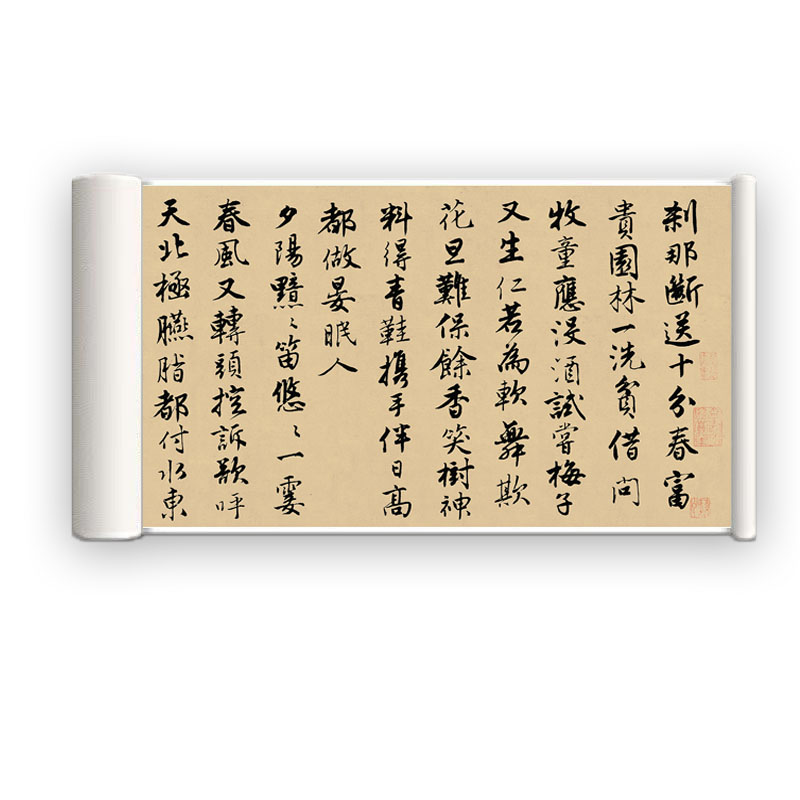 刹那斷送十分春富
貴園林一洗貧借問
牧童應没酒試嘗梅子
又生仁若為軟舞欺
花旦難保餘香笑樹神
料得青鞋攜手伴日高
都做晏眠人
夕陽黯〻笛悠〻一霎
春風又轉頭控訴欲呼
天北極臙脂都付水東